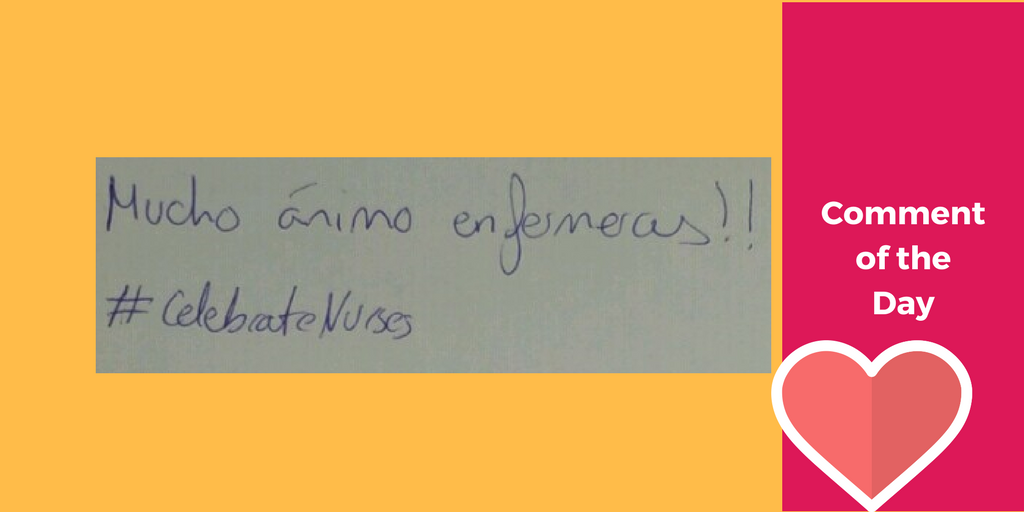 Mucho ánimo enfermeras!!
#CelebrateNurses
Comment
of the
Day